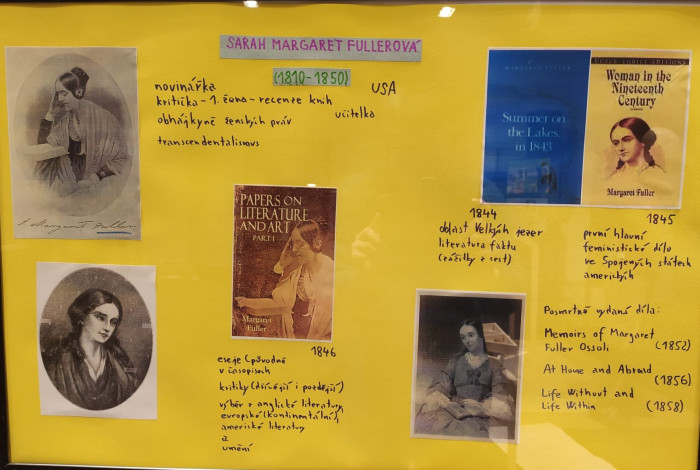 SARAH MARGARET FULLEROVÁ
(1810-1850)
USA
novinářka
kritička - 1. žena - recenze knih
učitelka
obhájkyně ženských práv
transcendentalismus
S. Margaret Fuller
PAPERS ON
LITERATURE
AND ART
PART I
Margaret
Fuller
1846
eseje (původně
v časopisech
kritiky (dřívější i pozdější)
výběr z anglické literatury,
evropské (kontinentální),
americké literatury
a
umění
MARGARET FULLER
Summer on
the Lakes,
in 1843
1844
oblast Velkých jezer
literatura faktu
(zážitky z cest)
DOVER THRIFT EDITIONS
Woman in the
Nineteenth
Century
Margaret Fuller
1845
první hlavní
feministické dílo
ve Spojených státech
amerických
Posmrtně vydaná díla:
Memoirs of Margaret
Fuller Ossoli (1852)
At Home and Abroad
(1856)
Life Without and
Life Within (1858)